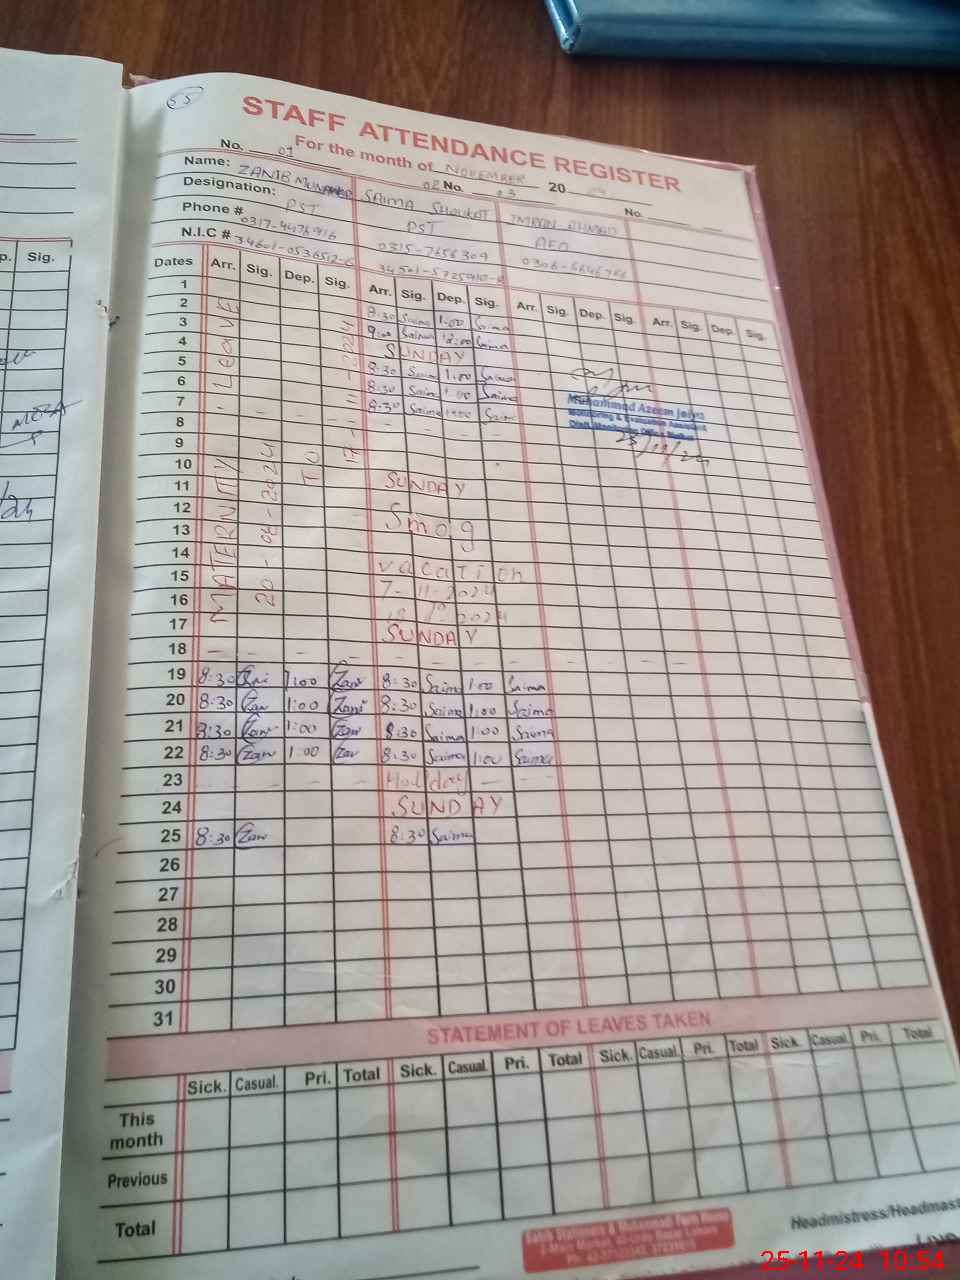 55
STAFF ATTENDANCE REGISTER
For the month of NOVEMBER 20 24
No. 01 02 No. 03 No.
Name: ZANIB SAIMA SHOUKAT IMRAN AHMAD
Designation: PST PST AEO
Phone # 0317-4476916 0315-7656309
N.I.C #
Dates Arr. Sig. Dep. Sig. Arr. Sig. Dep. Sig. Arr. Sig. Dep. Sig. Arr. Sig. Dep. Sig.
1 8:30 Saima 1:00 Saima
2 9:00 Saima 12:00 Saima
3 SUNDAY
4 8:30 Saima 1:00 Saima
5 8:30 Saima 1:00 Saima
6 8:30 Saima 1:00 Saima
7
8
9
10 SUNDAY
11
12 Smog
13
14 vacation
15 7-11-2024
16 2024
17 SUNDAY
18
19 8:30 Zai 1:00 Zan 8:30 Saima 1:00 Saima
20 8:30 Zan 1:00 Zani 8:30 Saima 1:00 Saima
21 8:30 Zan 1:00 Zan 8:30 Saima 1:00 Saima
22 8:30 Zan 1:00 Zan 8:30 Saima 1:00 Saima
23 Holiday
24 SUNDAY
25 8:30 Zan 8:30 Saima
26
27
28
29
30
31
MATERNITY Leave
20-08-2024
TO
17-11-2024
Muhammad Azeem Joiya
Monitoring & Evaluation Assistant
25/11/24
STATEMENT OF LEAVES TAKEN
Sick. Casual. Pri. Total Sick. Casual. Pri. Total Sick. Casual. Pri. Total Sick. Casual. Pri. Total
This month
Previous
Total
Headmistress/Headmast
25-11-24 10:54
p. Sig.